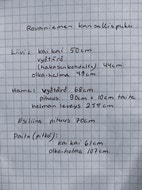 Rovaniemen kansallispuku.
Liivi: kaikai 50cm
vyötärö
(hakaskohdalla) 44cm
olka-helma 49cm
Hame: vyötärö 68cm
pituus 90cm + 10cm taite
helman leveys 254cm
Esiliina pituus 70cm
Paita (pitkä):
kaikai 61cm
olka-helma 107cm